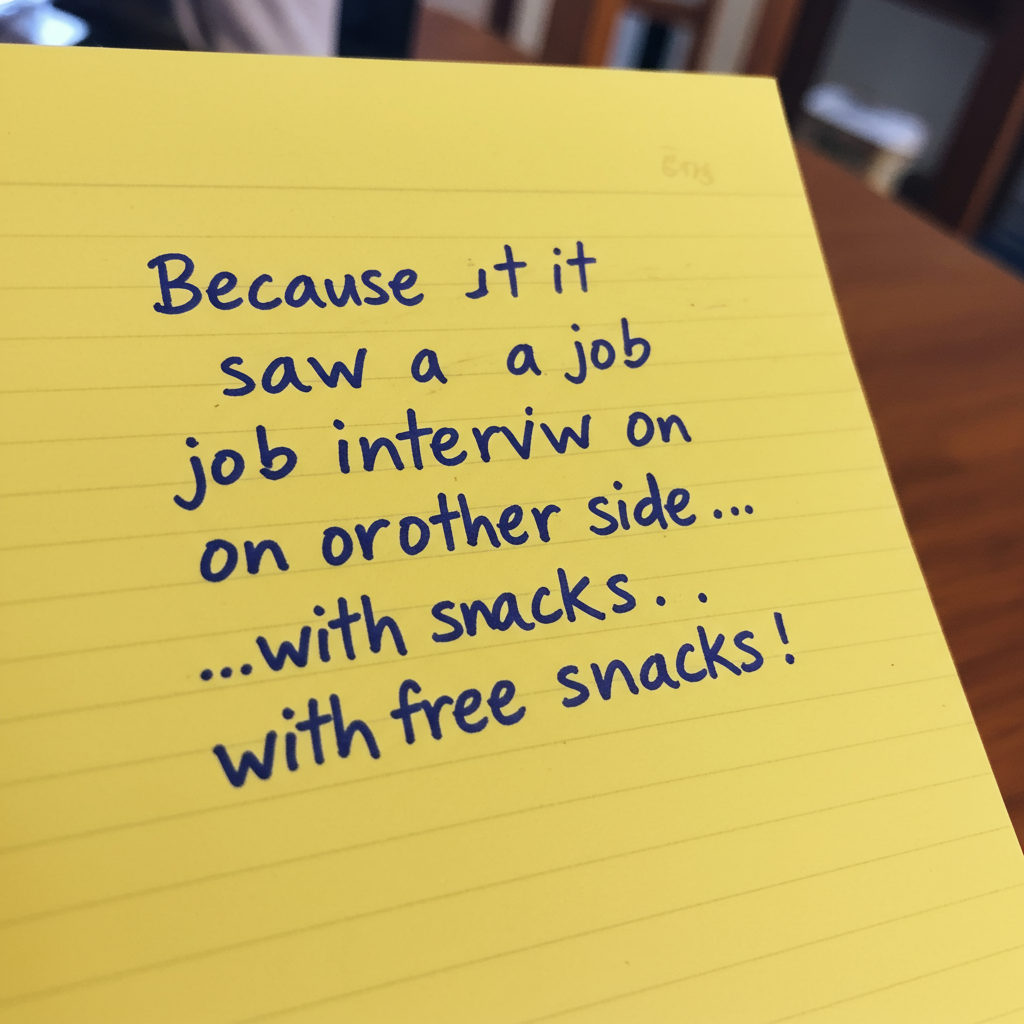 Because ıt it
saw a a job
job interviw on
on orother side...
...with snacks. .
with free snacks!